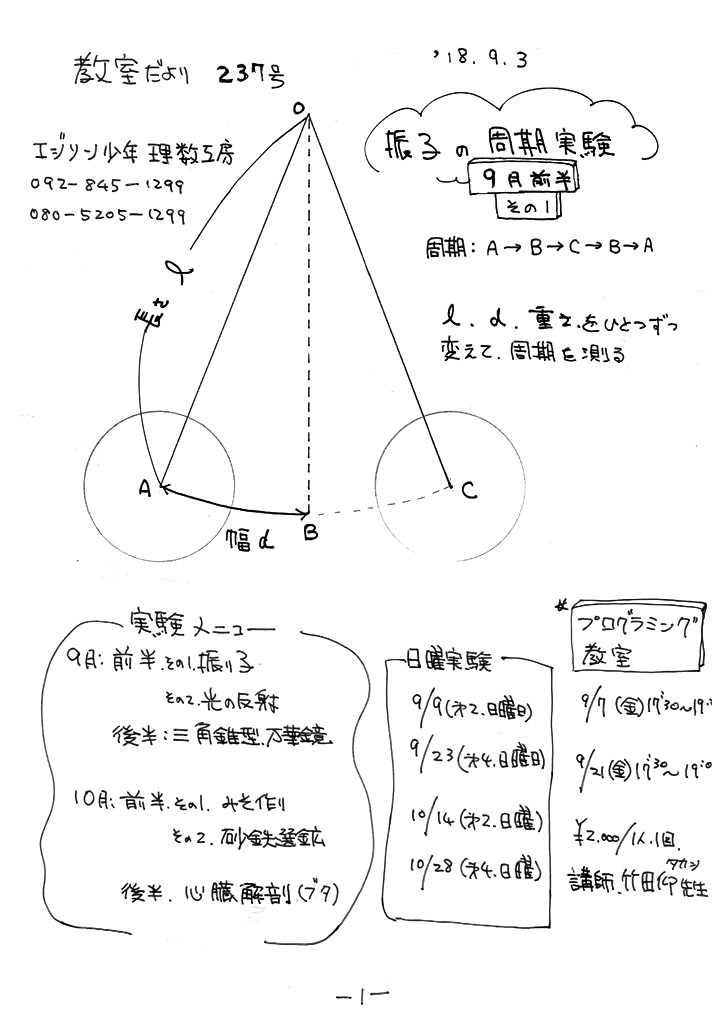 教室だより 237号
'18.9.3
エジソン少年理数工房
092-845-1299
080-5205-1299
振子の周期実験
9月前半
その1
周期: A→B→C→B→A
l. d. 重さ.をひとつずつ
変えて.周期を測る
O
長さ l
A
B
C
幅d
実験メニュー
9月:前半.その1.振り子
その2.光の反射
後半:三角錐型.万華鏡
10月:前半.その1.みそ作り
その2.砂鉄選鉱
後半.心臓解剖(ブタ)
日曜実験
9/9(才2.日曜日)
9/23(才4.日曜日)
10/14(才2.日曜)
10/28(才4.日曜)
プログラミング
教室
9/7(金)17:30~19:
9/21(金)17:30~19:0
¥2.000/1人.1回.
タカシ
講師.竹田仰先生
-1-